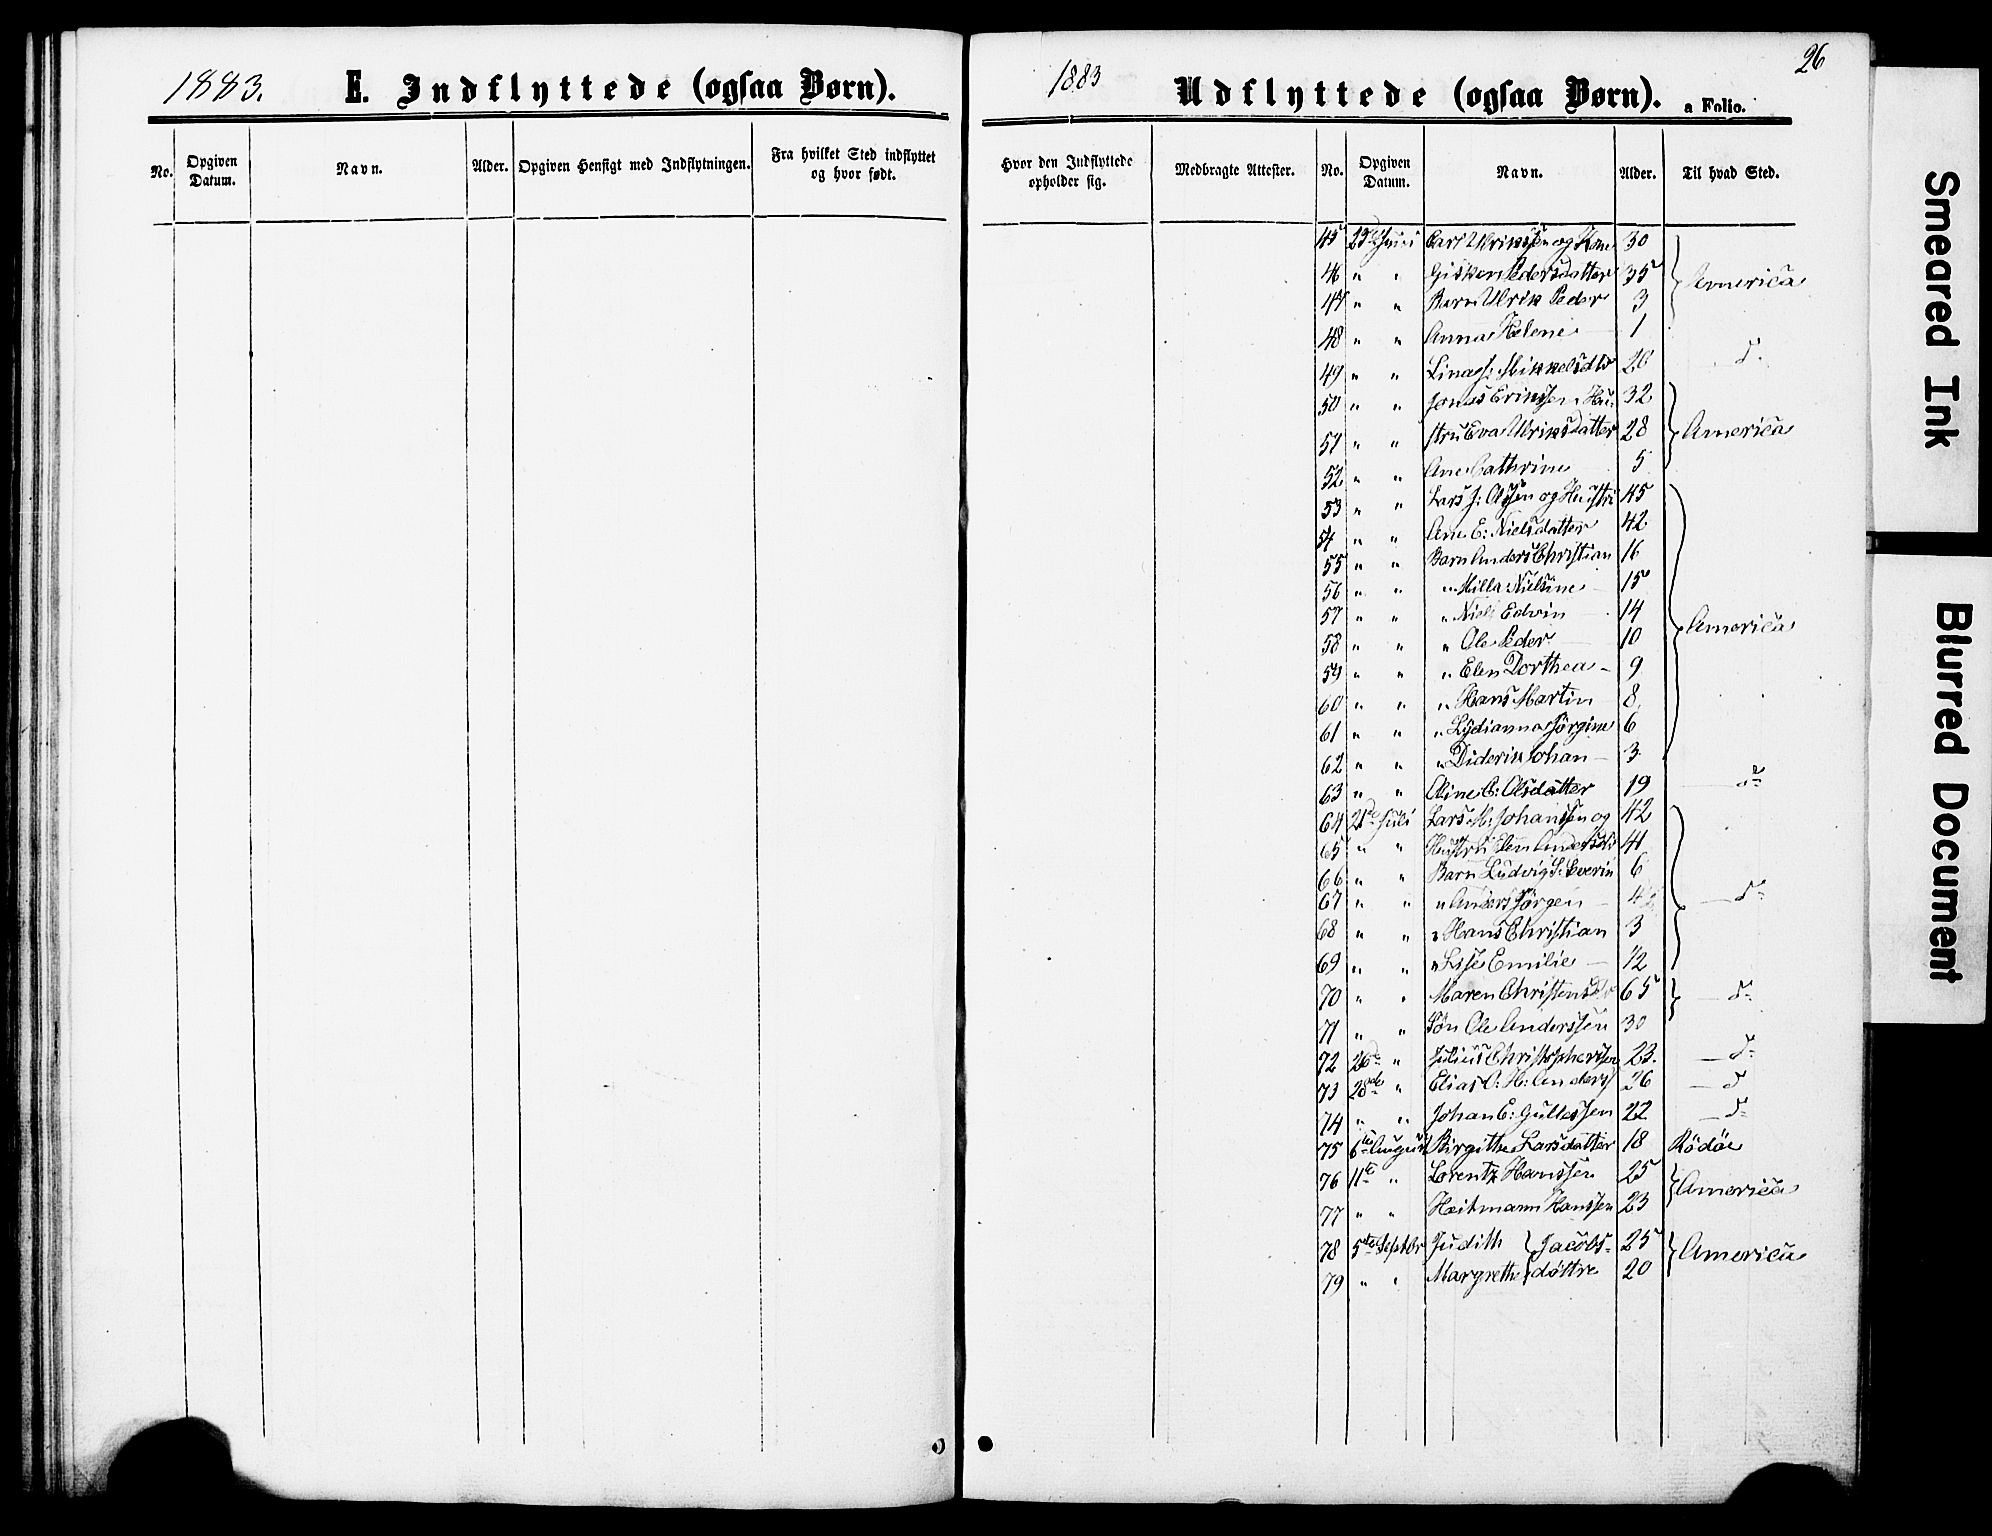 1883. E. Indflyttede (ogsaa Børn).
No. Opgiven Datum. Navn. Alder. Opgiven Hensigt med Indflytningen. Fra hvilket Sted indflyttet og hvor født.
26
1883 Udflyttede (ogsaa Børn). a Folio.
Hvor den Indflyttede opholder sig. Medbragte Attester. No. Opgiven Datum. Navn. Alder. Til hvad Sted.
45 Carl Ulrikssen og Kone 30
46 " " Pedersdatter 35 America
47 " " Barn Ulrik Peder 3
48 " " Anna Helene 1
49 " " d.
50 " " Jonas Erikssen Hu- 32
51 " " stru Eva Ulriksdatter 28 America
52 " " Ane Cathrine 5
53 " " Lars J: Olssen og Hustru 45
54 " " Ane E: Nielsdatter 42
55 " " Barn Anders Christian 16
56 " " " Milla Nielsine 15
57 " " " Niels Edvin 14 America
58 " " " Ole Peder 10
59 " " " Elen Dorthea - 9
60 " " " Hans Martin 8
61 " " " Lydianna Jørgine 6
62 " " " Diderik Johan - 3
63 " " Olsdatter 19 do
64 21de Juli Lars M: Johanssen og 42
65 " " Hustru Elen 41
66 " " Barn Ludvig S: Severin 6
67 " " " Anders Jørgen - d-
68 " " " Hans Christian 3
69 " " " Lise Emilie - 12
70 " " Maren 65 d-
71 " " Søn Ole Anderssen 30
72 26de " Julius Christophersen 23. d-
73 28de " Elias O: H: Anders 26 d
74 " " Johan E: Gullessen 22 d-
75 6te August Birgithe Larsdatter 18 Rödöe
76 11te " Lorentz Hanssen 25 America
77 " " Heitmann Hanssen 23
78 5te Septbr Judith Jacobs- 25 America
79 " " Margrethe døttre 20
Smeared Ink
Blurred Document